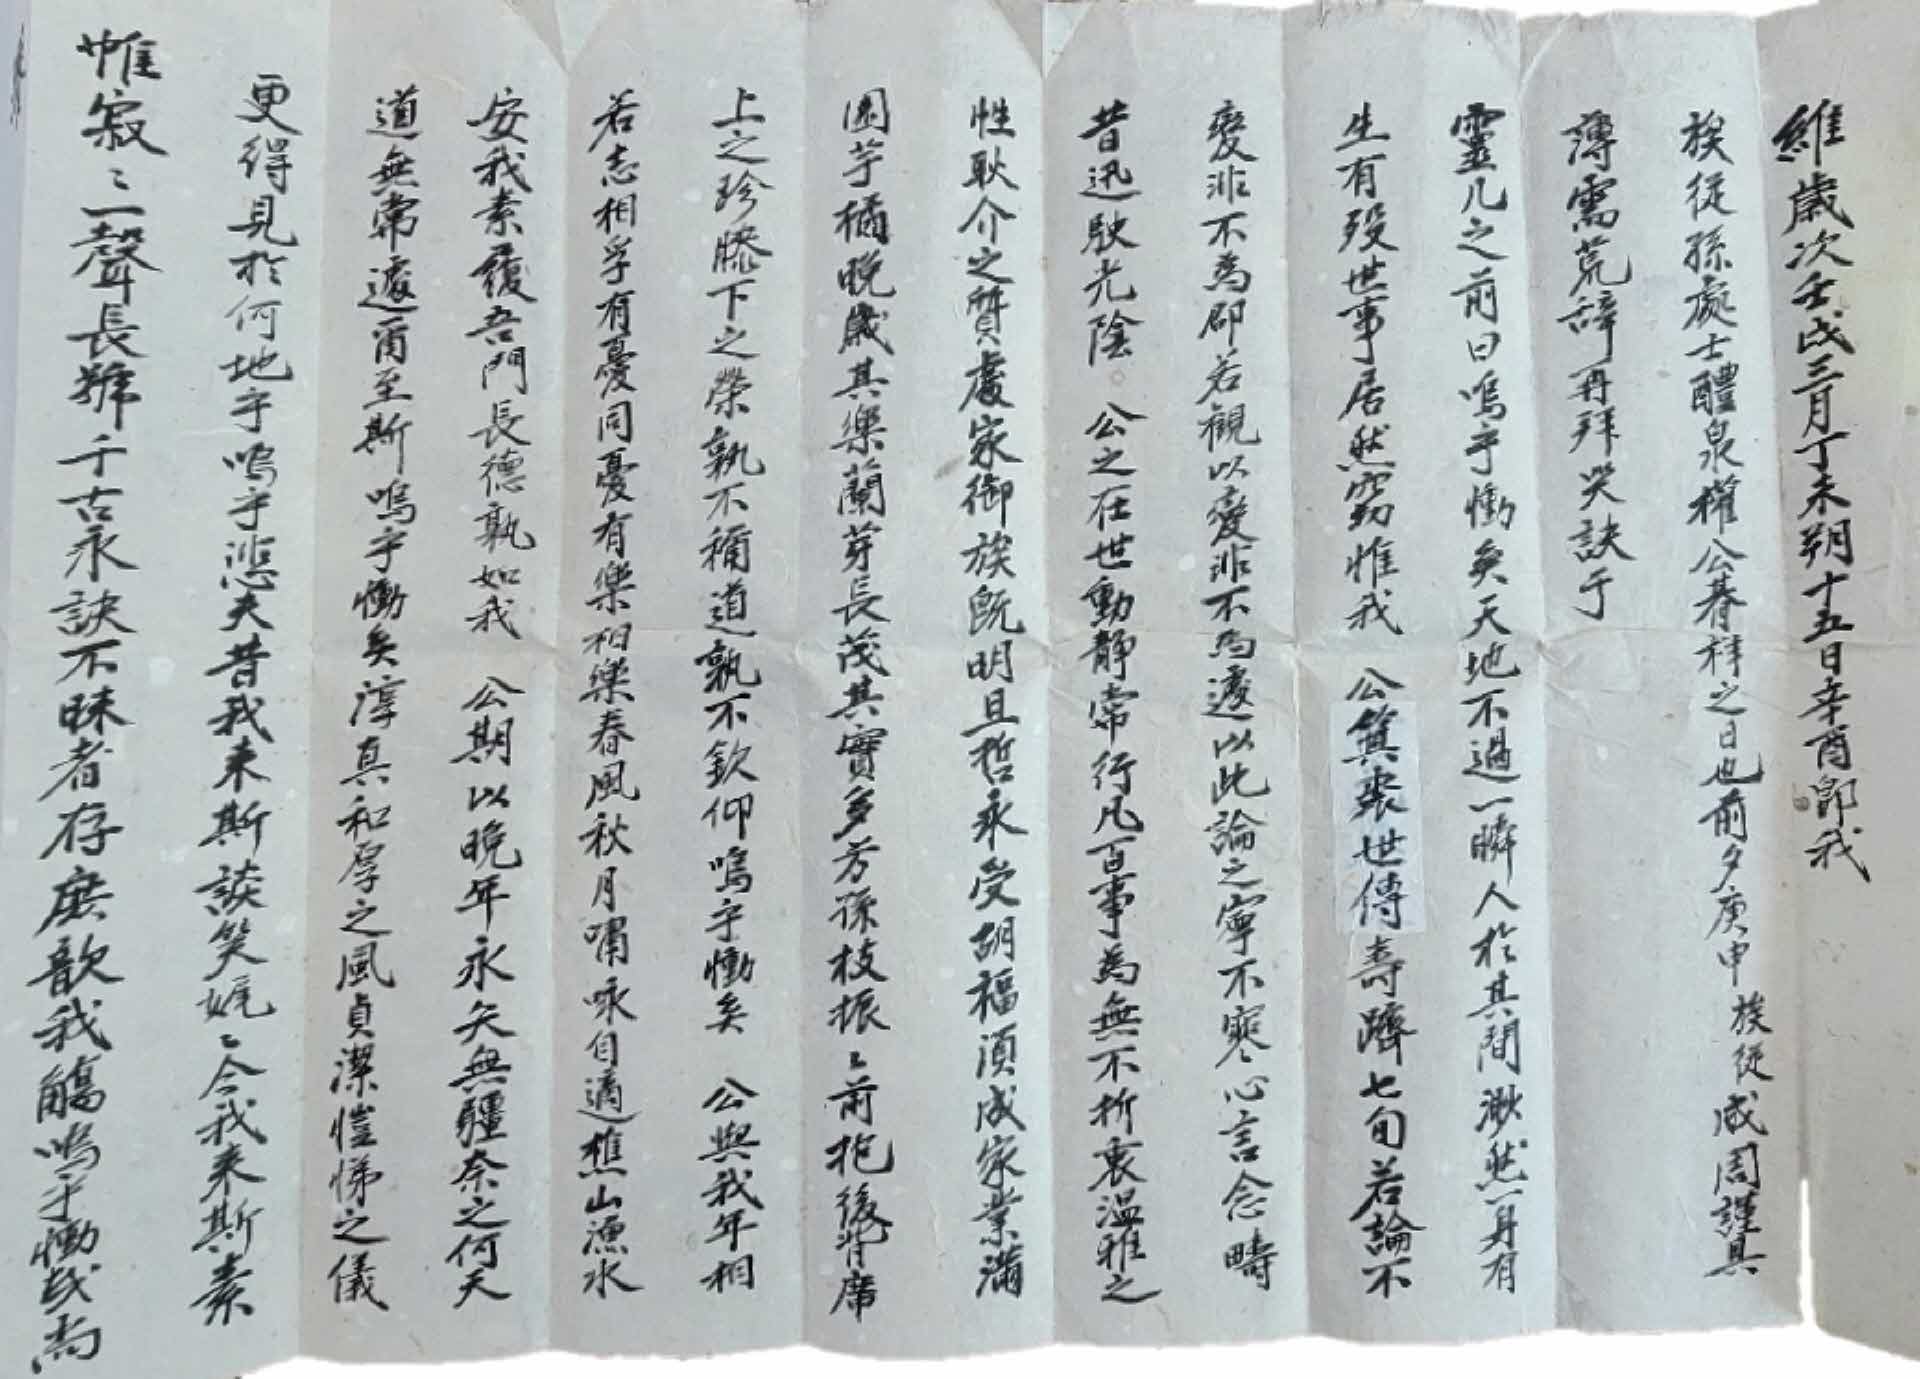 維歲次壬戌三月丁未朔十五日辛酉卽我
族從孫處士醴泉權公朞祥之日也前夕庚申族從成周謹具
薄需荒辭再拜哭訣于
靈几之前曰嗚乎慟矣天地不過一瞬人於其間渺然一身有
生有歿世事居然窮惟我 公箕裘世傳壽躋七旬若論不
變非不爲郎若觀以變非不爲遽以此論之寧不寒心言念疇
昔迅駛光陰 公之在世動靜常行凡百事爲無不折衷溫雅之
性耿介之質處家御族旣明且哲永受胡福湏成家業滿
園芋橘晩歲其樂蘭芽長茂其實多芳孫枝振〻前抱後背席
上之珍膝下之榮孰不稱道孰不欽仰嗚乎慟矣 公與我年相
若志相孚有憂同憂有樂和樂春風秋月嘯咏自適樵山漁水
安我素履吾門長德孰如我 公期以晩年永矢無疆奈之何天
道無常遽爾至斯嗚乎慟矣淳眞和厚之風貞潔愷悌之儀
更得見於何地乎嗚乎悲夫昔我來斯談笑娓〻今我來斯素
帷寂〻一聲長號千古永訣不昧者存庶歆我觴嗚乎慟哉尙